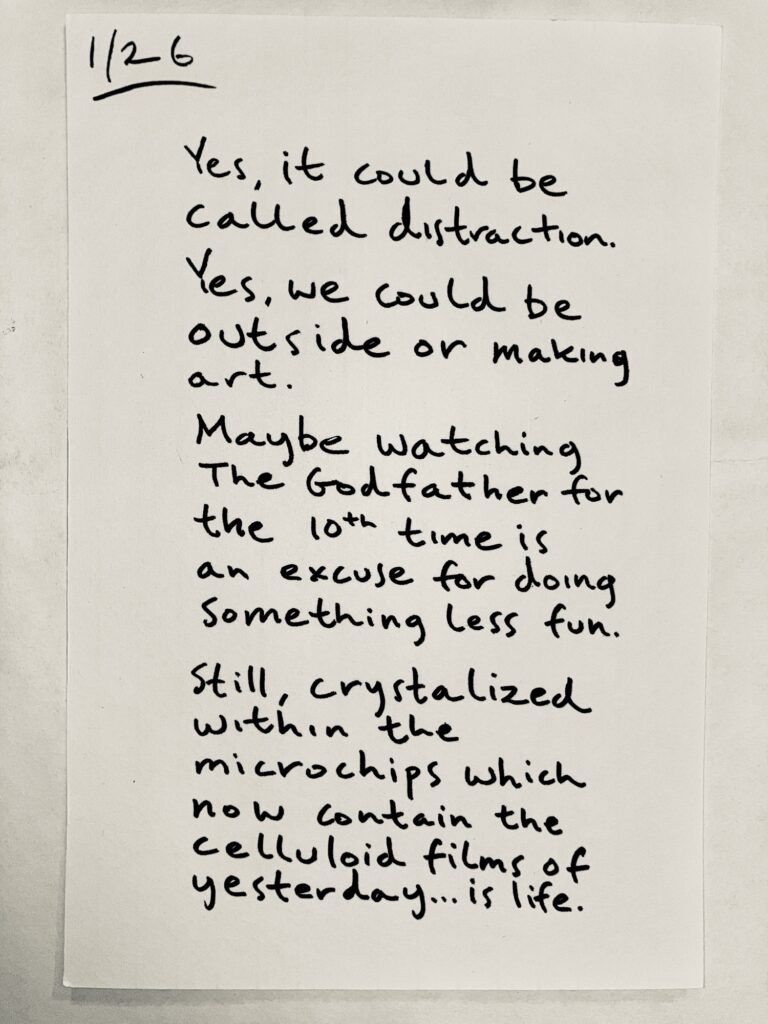 1/26
Yes, it could be
called distraction.
Yes, we could be
outside or making
art.
Maybe watching
The Godfather for
the 10th time is
an excuse for doing
something less fun.
Still, crystalized
within the
microchips which
now contain the
celluloid films of
yesterday... is life.